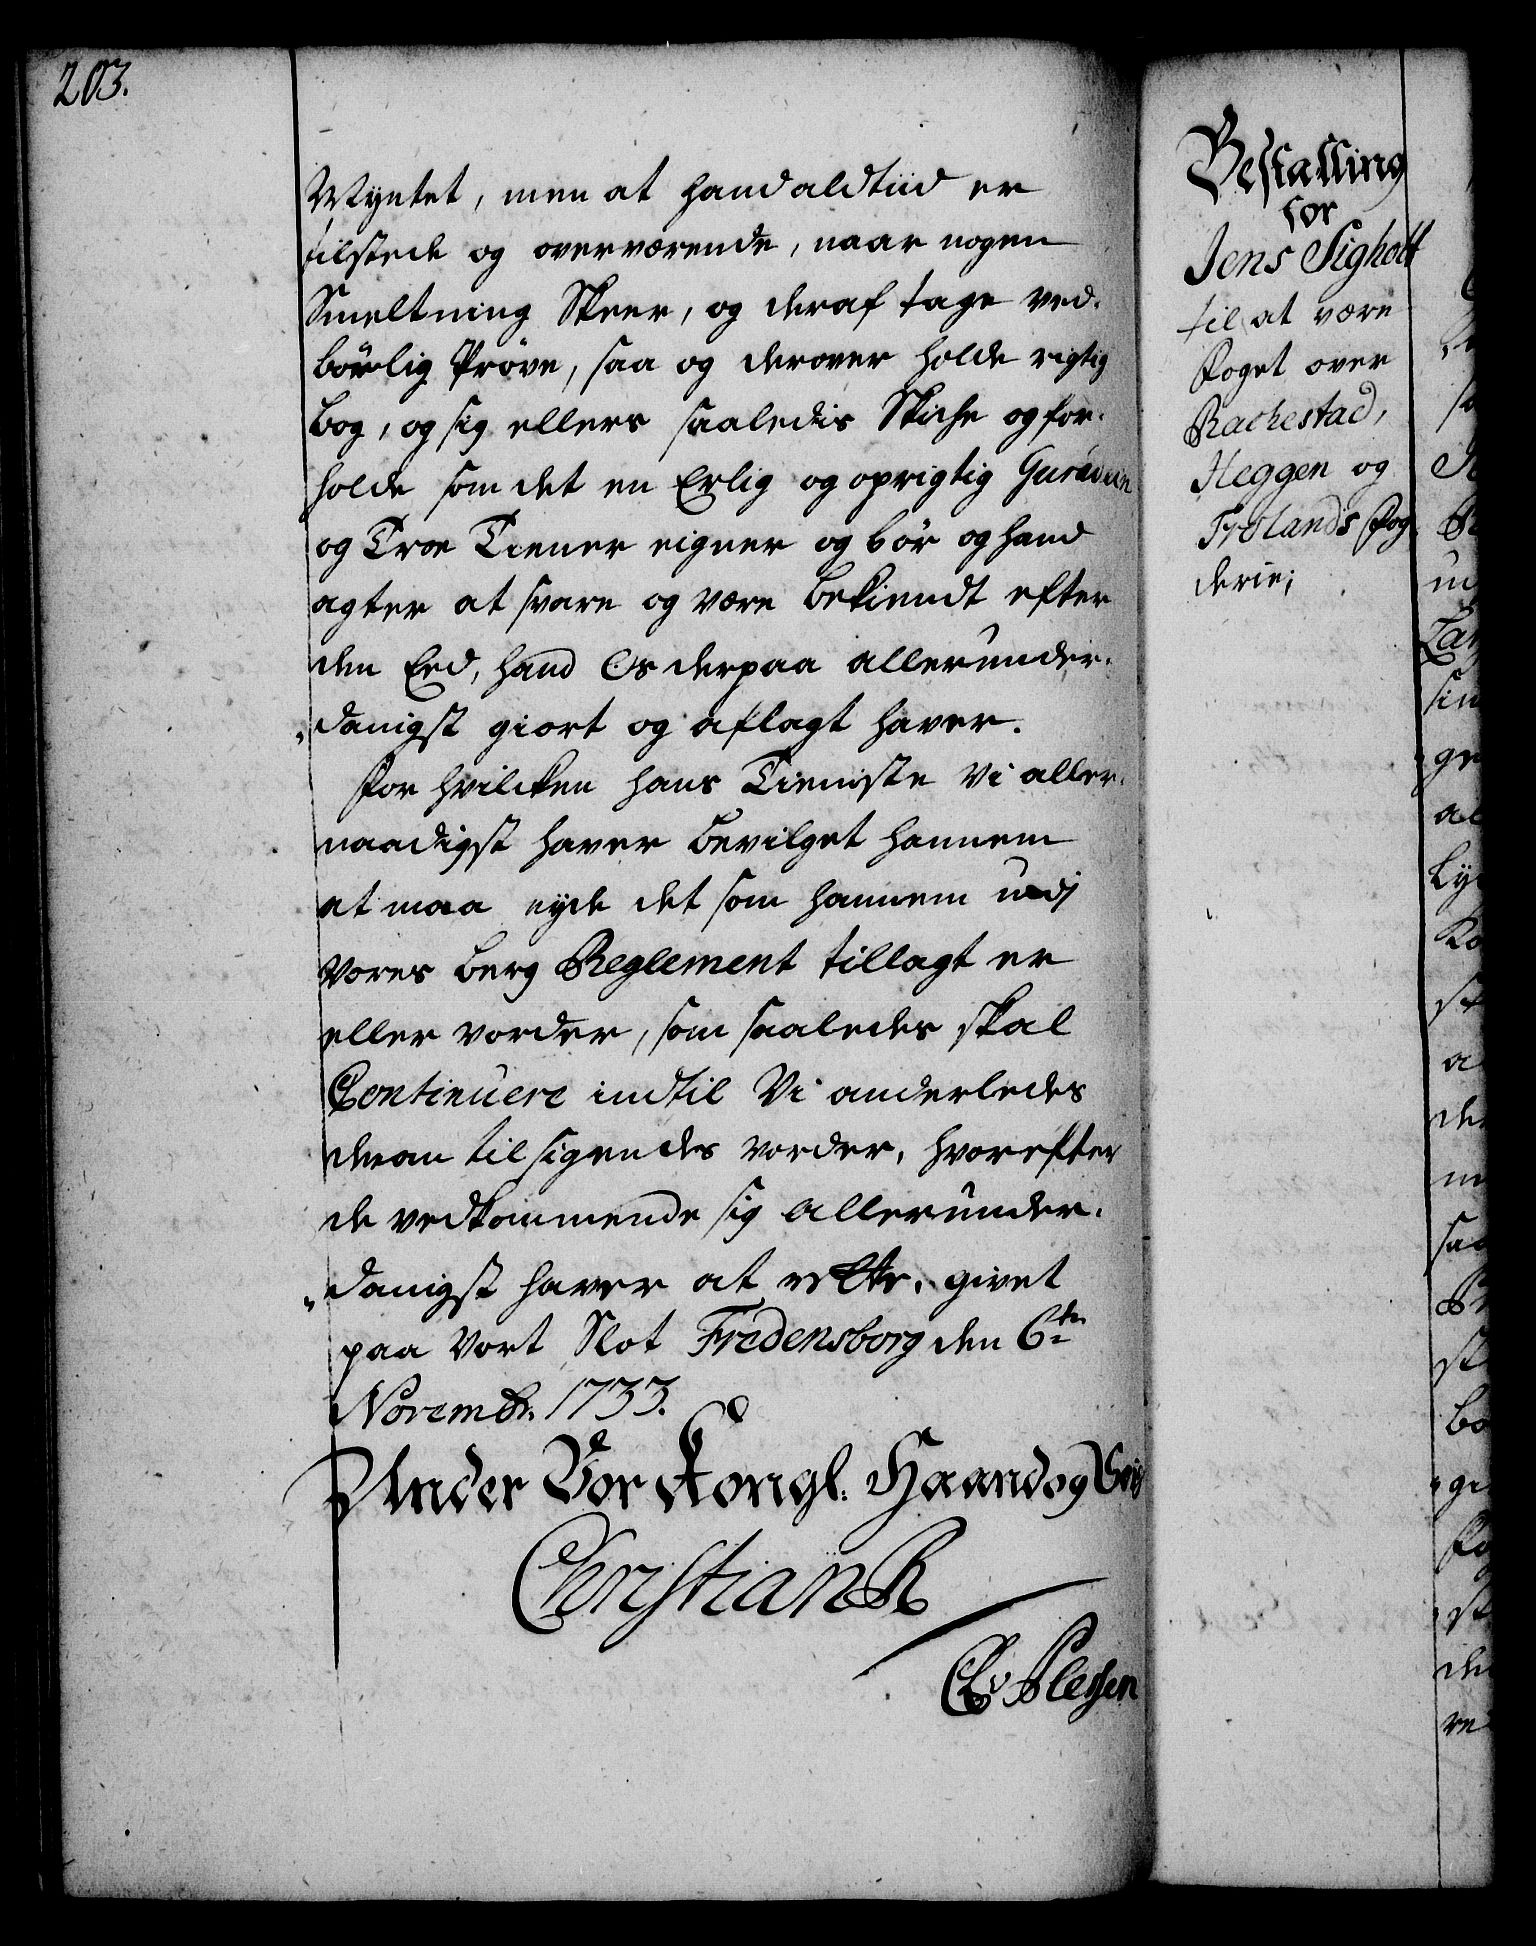 203.
Myntet, men at hand aldtiid er
tilstede og overværende, naar nogen
Smeltning Skeer, og deraf tage ved-
børlig Prøve, saa og derover holde rigtig
bog, og sig ellers saaledis Skicke og for-
holde som det en Erlig og oprigtig Guardein
og Troe Tiener eigner og bør og hand
agter at svare og være bekiendt efter
den Eed, hand Os derpaa allerunder-
danigst giort og aflagt haver.
For hvilcken hans Tieniste Vi aller-
naadigst haver bevilget hannem
at maa nyde det som hannem udj
Vores berg Reglement tillagt er
eller vorder, som saaledes skal
Continuere indtil Vi anderledes
deran tilsigendes vorder, hvorefter
de vedkommende sig allerunder-
danigst haver at rette. givet
paa Vort Slot Fredensborg den 6te
Novembr. 1733.
Under Vor Kongl. Haand og
Christian R
v Plessen
Bestalling
for
Jens Sigholt
til at være
Foget over
Rackestad,
Heggen og
Frølands Fog-
derie;